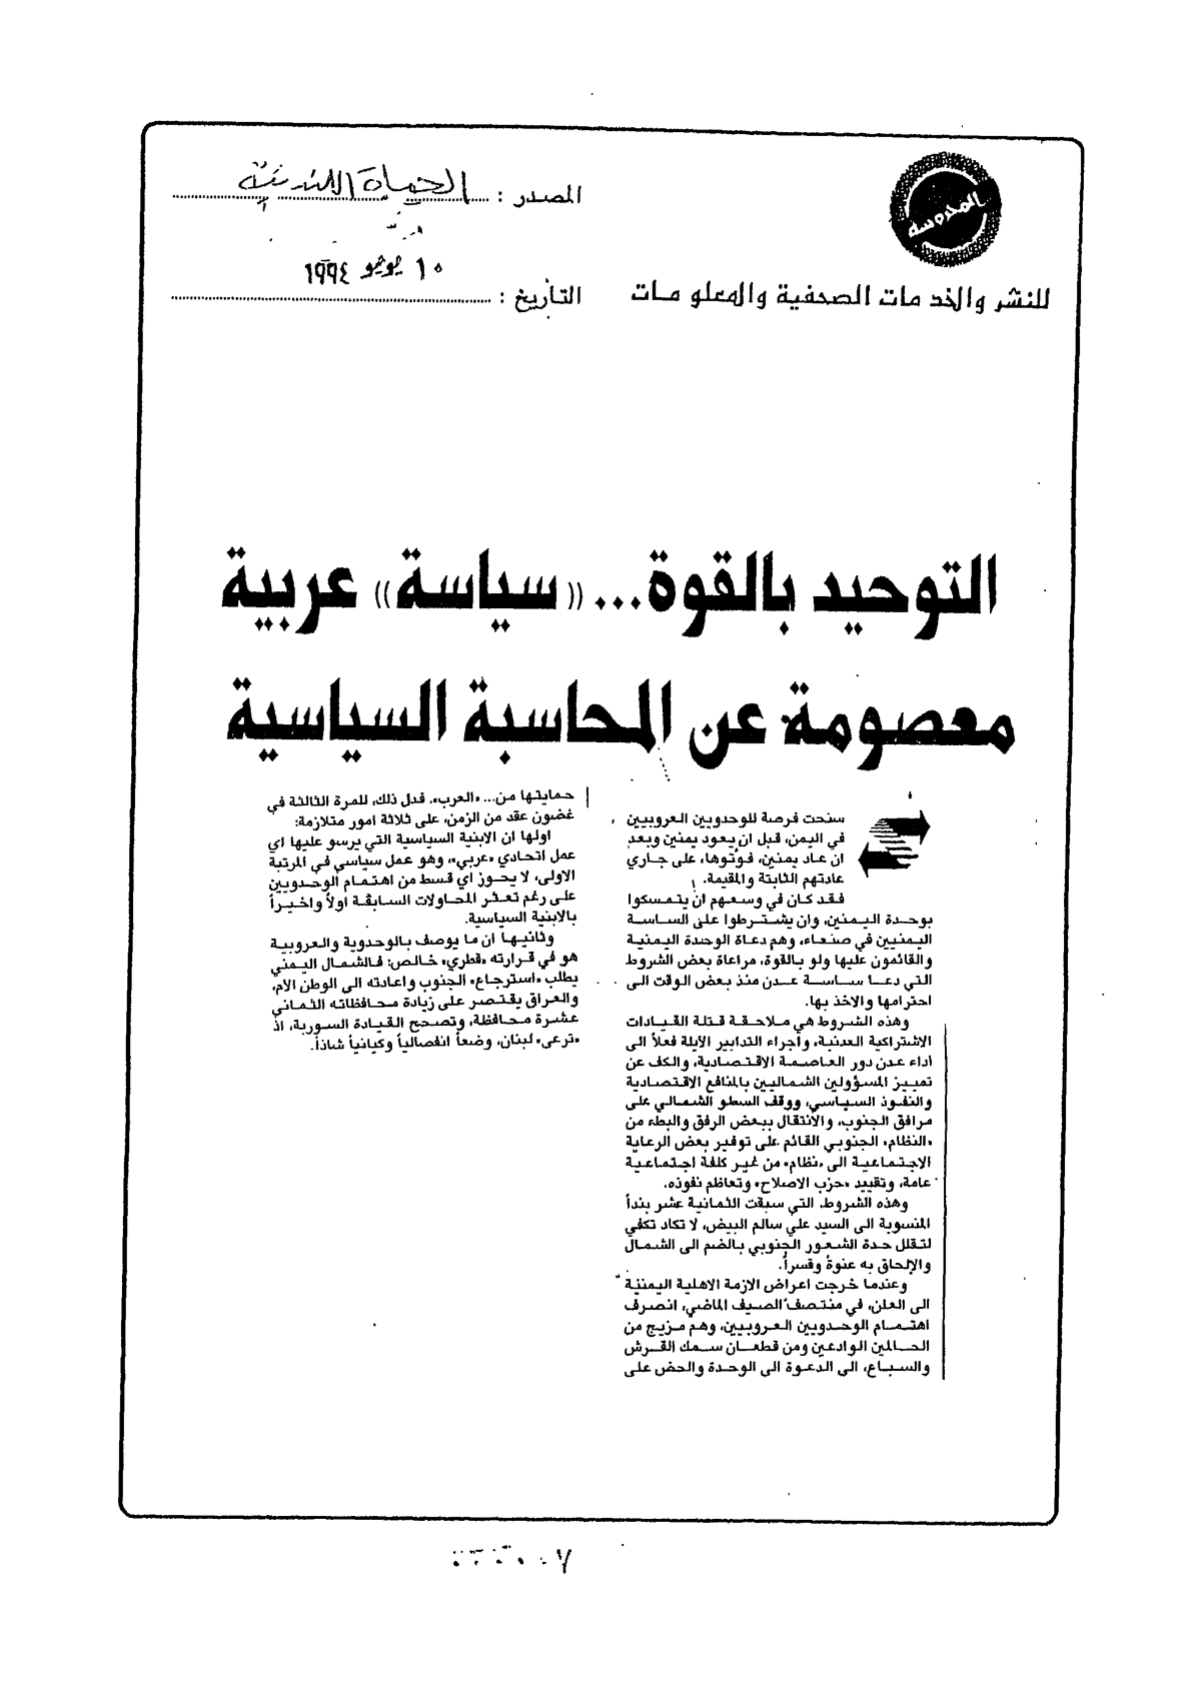 المحروسة
المصدر : الحياة اللندنية
التاريخ : ١٠ يونيو ١٩٩٤
للنشر والخدمات الصحفية والمعلومات
التوحيد بالقوة... «سياسة» عربية
معصومة عن المحاسبة السياسية
سنحت فرصة للوحدويين العروبيين
في اليمن، قبل ان يعود يمنين وبعد
ان عاد يمنين، فوّتوها، على جاري
عادتهم الثابتة والمقيمة.
فقد كان في وسعهم ان يتمسكوا
بوحدة اليمنين، وان يشترطوا على الساسة
اليمنيين في صنعاء، وهم دعاة الوحدة اليمنية
والقائمون عليها ولو بالقوة، مراعاة بعض الشروط
التي دعا ساسة عدن منذ بعض الوقت الى
احترامها والاخذ بها.
وهذه الشروط هي ملاحقة قتلة القيادات
الاشتراكية العدنية، وأجراء التدابير الآيلة فعلاً الى
اداء عدن دور العاصمة الاقتصادية، والكف عن
تمييز المسؤولين الشماليين بالمنافع الاقتصادية
والنفوذ السياسي، ووقف السطو الشمالي على
مرافق الجنوب، والانتقال ببعض الرفق والبطء من
«النظام» الجنوبي القائم على توفير بعض الرعاية
الاجتماعية الى «نظام» من غير كلفة اجتماعية
عامة، وتقييد «حزب الاصلاح» وتعاظم نفوذه.
وهذه الشروط، التي سبقت الثمانية عشر بنداً
المنسوبة الى السيد علي سالم البيض، لا تكاد تكفي
لتقلل حدة الشعور الجنوبي بالضم الى الشمال
والإلحاق به عنوةً وقسراً.
وعندما خرجت اعراض الازمة الاهلية اليمنية
الى العلن، في منتصف الصيف الماضي، انصرف
اهتمام الوحدويين العروبيين، وهم مزيج من
الحالمين الوادعين ومن قطعان سمك القرش
والسباع، الى الدعوة الى الوحدة والحض على
حمايتها من... «العرب». فدل ذلك، للمرة الثالثة في
غضون عقد من الزمن، على ثلاثة امور متلازمة:
اولها ان الابنية السياسية التي يرسو عليها اي
عمل اتحادي «عربي»، وهو عمل سياسي في المرتبة
الاولى، لا يحوز أي قسط من اهتمام الوحدويين
على رغم تعثر المحاولات السابقة اولاً واخيراً
بالابنية السياسية.
وثانيها ان ما يوصف بالوحدوية والعروبية
هو في قرارته «قطري» خالص: فالشمال اليمني
يطلب «استرجاع» الجنوب واعادته الى الوطن الأم،
والعراق يقتصر على زيادة محافظاته الثماني
عشرة محافظة، وتصحح القيادة السورية، اذ
«ترعى» لبنان، وضعاً انفصالياً وكيانياً شاذاً.